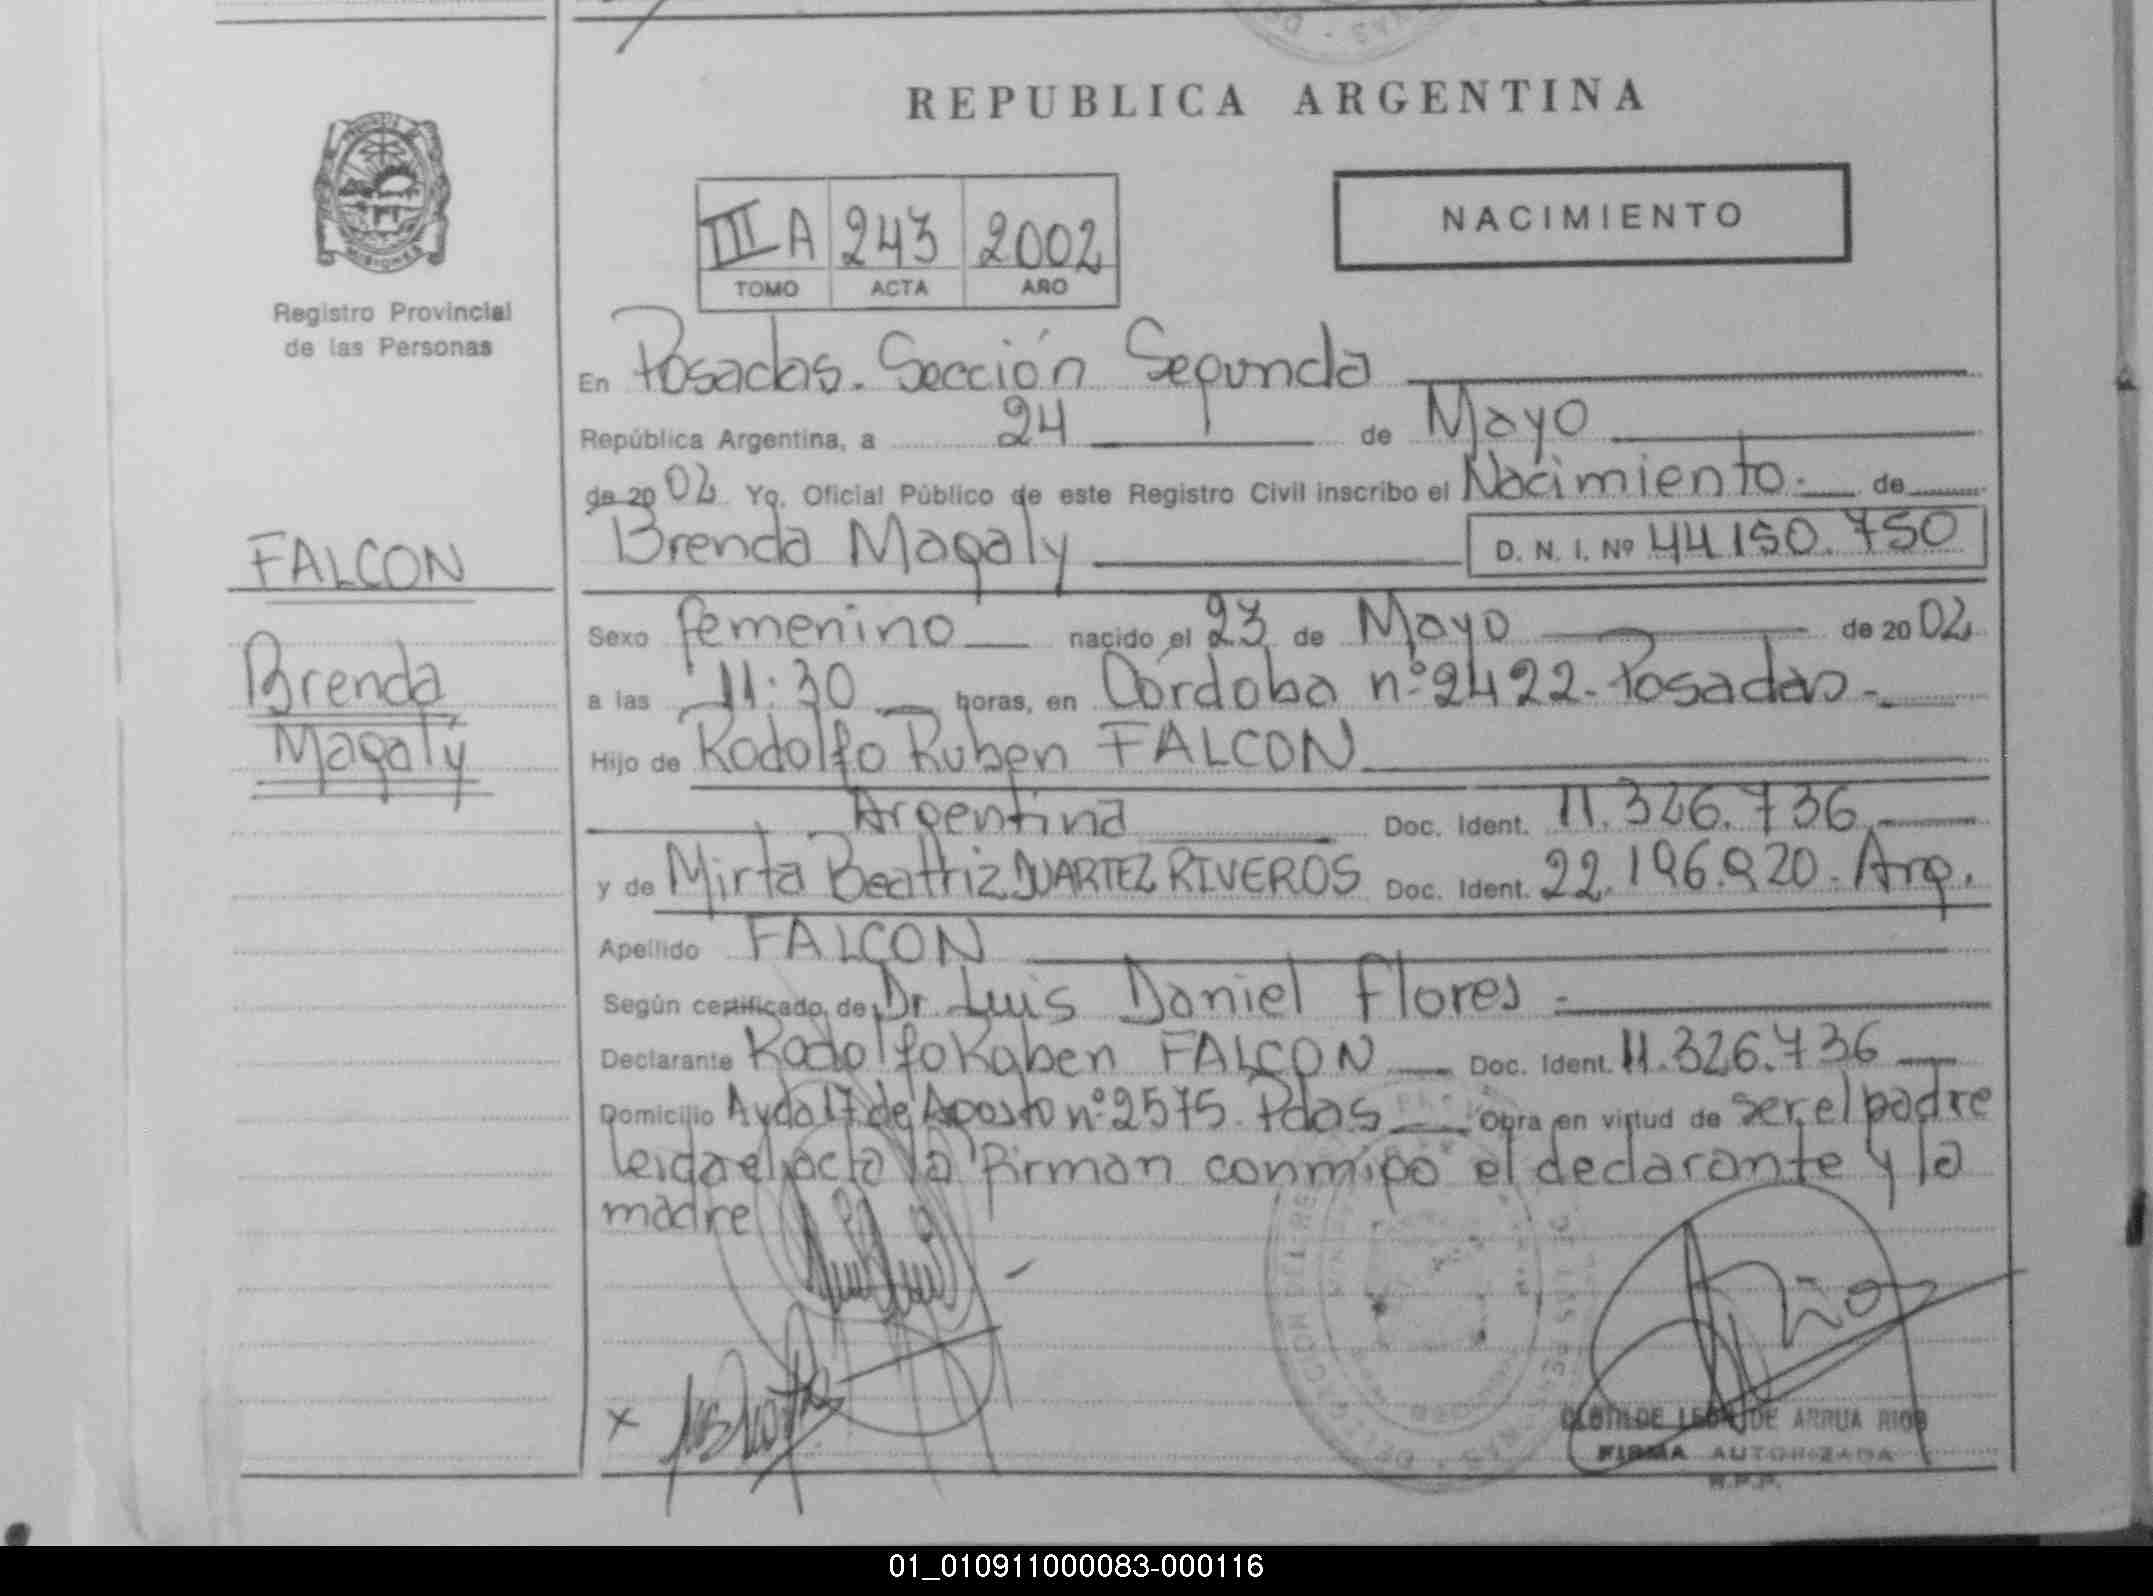 REPUBLICA ARGENTINA
NACIMIENTO
III A 243 2002
TOMO ACTA AÑO
Registro Provincial
de las Personas
MISIONES
En Posadas. Sección Segunda
República Argentina, a 24 de Mayo
de 2002 Yo, Oficial Público de este Registro Civil inscribo el Nacimiento. de
Brenda Magaly D. N. I. Nº 44.150.750
FALCON
Brenda
Magaly
Sexo femenino nacido el 23 de Mayo de 2002
a las 11:30 horas, en Córdoba nº 2422. Posadas.
Hijo de Rodolfo Ruben FALCON
Argentina Doc. Ident. 11.326.736
y de Mirta Beatriz DUARTEZ RIVEROS Doc. Ident. 22.196.920. Arg.
Apellido FALCON
Según certificado de Dr. Luis Daniel Flores.
Declarante Rodolfo Ruben FALCON Doc. Ident. 11.326.736
Domicilio Avda 17 de Agosto nº 2575. Pdas Obra en virtud de ser el padre
leida el acta la firman conmigo el declarante y la
madre
CLOTILDE DE ARRUA RIOS
FIRMA AUTORIZADA
R.P.P.
01_010911000083-000116